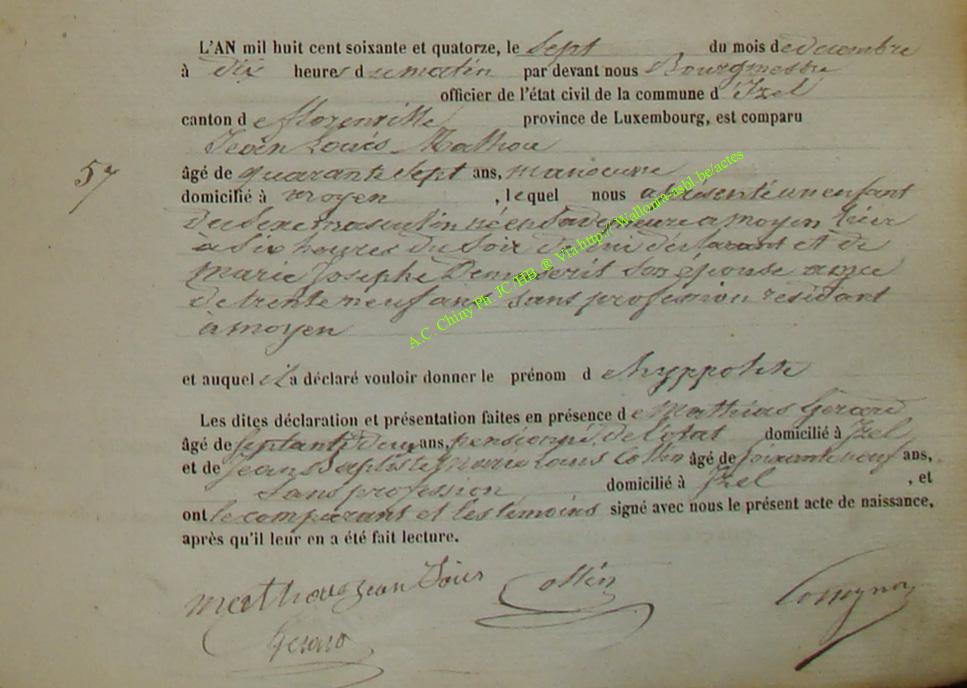 L'AN mil huit cent soixante et quatorze, le Sept du mois de decembre
à Dix heures du matin par devant nous Bourgmestre
officier de l'état civil de la commune d'Izel
canton de florenville province de Luxembourg, est comparu
Jean Louis Mathou
57
âgé de quarante Sept ans, manoeuvre
domicilié à moyen , lequel nous a présenté un enfant
Du Sexe masculin né en Sa demeure a moyen hier
à Six heures du Soir de lui déclarant et de
Marie Josephe Son épouse agee
de trente neuf ans Sans profession residant
à moyen
et auquel il a déclaré vouloir donner le prénom d e hyppolite
Les dites déclaration et présentation faites en présence de Mathias Gerard
âgé de Septante Deux ans, pensionné de l'etat domicilié à Izel
et de Jean Baptiste Louis Collin âgé de Soixante neuf ans,
Sans profession domicilié à Izel , et
ont le comparant et les temoins signé avec nous le présent acte de naissance,
après qu'il leur en a été fait lecture.
Mathou Jean Louis Collin
Gerard
A.C. Chiny Ph. JC /HB. ® Via http:// Wallonia-asbl-be/actes